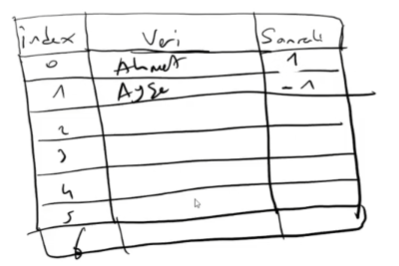 index Veri Sonraki
0 Ahmet 1
1 Ayşe -1
2
3
4
5